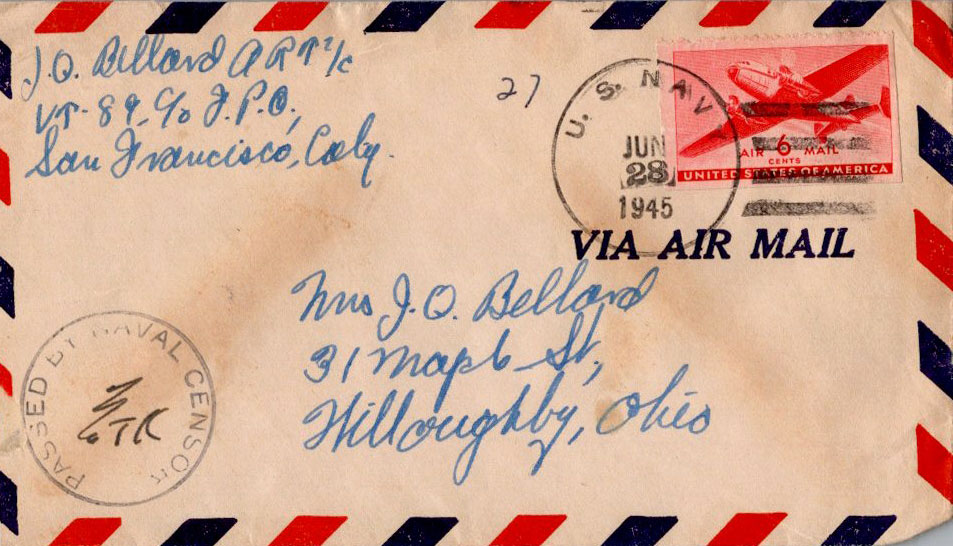 J.O. Bellard ART 2/c
VT-89, c/o F.P.O.,
San Francisco, Calif.
27
U.S. NAVY
JUN
28
1945
AIR 6 MAIL
CENTS
UNITED STATES OF AMERICA
VIA AIR MAIL
Mrs J.O. Bellard
31 Maple St,
Willoughby, Ohio
PASSED BY NAVAL CENSOR